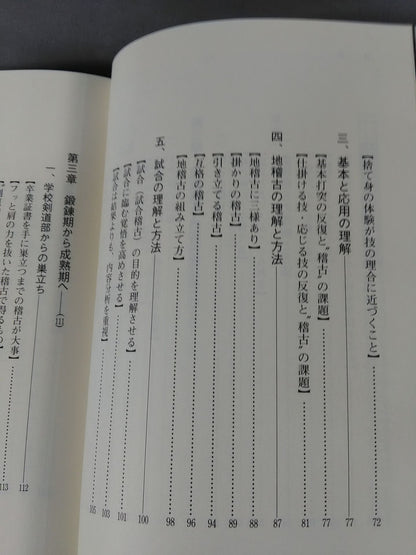 【捨て身の体験が技の理合に近づくこと】 72
三、基本と応用の理解 77
【基本打突の反復と〝稽古〟の課題】 77
【仕掛ける技・応じる技の反復と〝稽古〟の課題】 81
四、地稽古の理解と方法 87
【地稽古に三様あり】 88
【掛かりの稽古】 89
【引き立てる稽古】 94
【互格の稽古】 96
【地稽古の組み立て方】 98
五、試合の理解と方法 100
【試合（試合稽古）の目的を理解させる】 101
【試合に臨む覚悟を高めさせる】 103
【試合は結果よりも、内容分析を重視】 105
第三章 鍛錬期から成熟期へ——(II)
一、学校剣道部からの巣立ち 112
【卒業証書を手に巣立つまでの稽古が大事】 113
【フッと肩の力を抜いた稽古で得るもの】